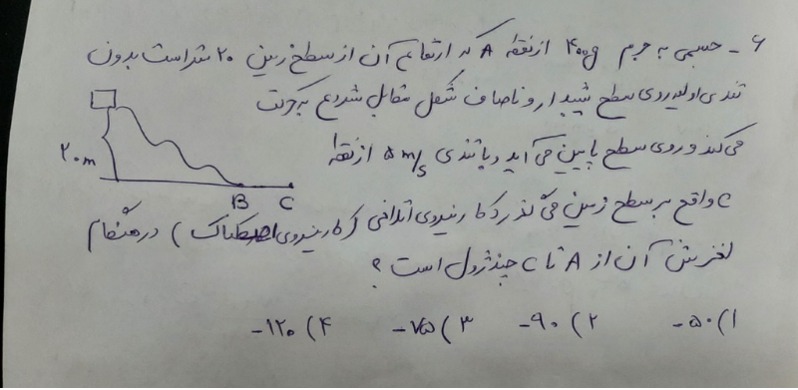 ۶ - جسمی به جرم ۴۰۰g از نقطه A که ارتفاع آن از سطح زمین ۲۰ متر است بدون
تندی اولیه روی سطح شیبدار و ناصاف شکل مقابل شروع به حرکت
می‌کند و روی سطح پایین می‌آید و با تندی ۵ m/s از نقطه
۲۰m
B C
C واقع بر سطح زمین می‌گذرد کار نیروی اتلافی (کار نیروی اصطکاک) در هنگام
لغزش آن از A تا C چند ژول است ؟
۱) ۵۰- ۲) ۹۰- ۳) ۷۵- ۴) ۱۲۰-